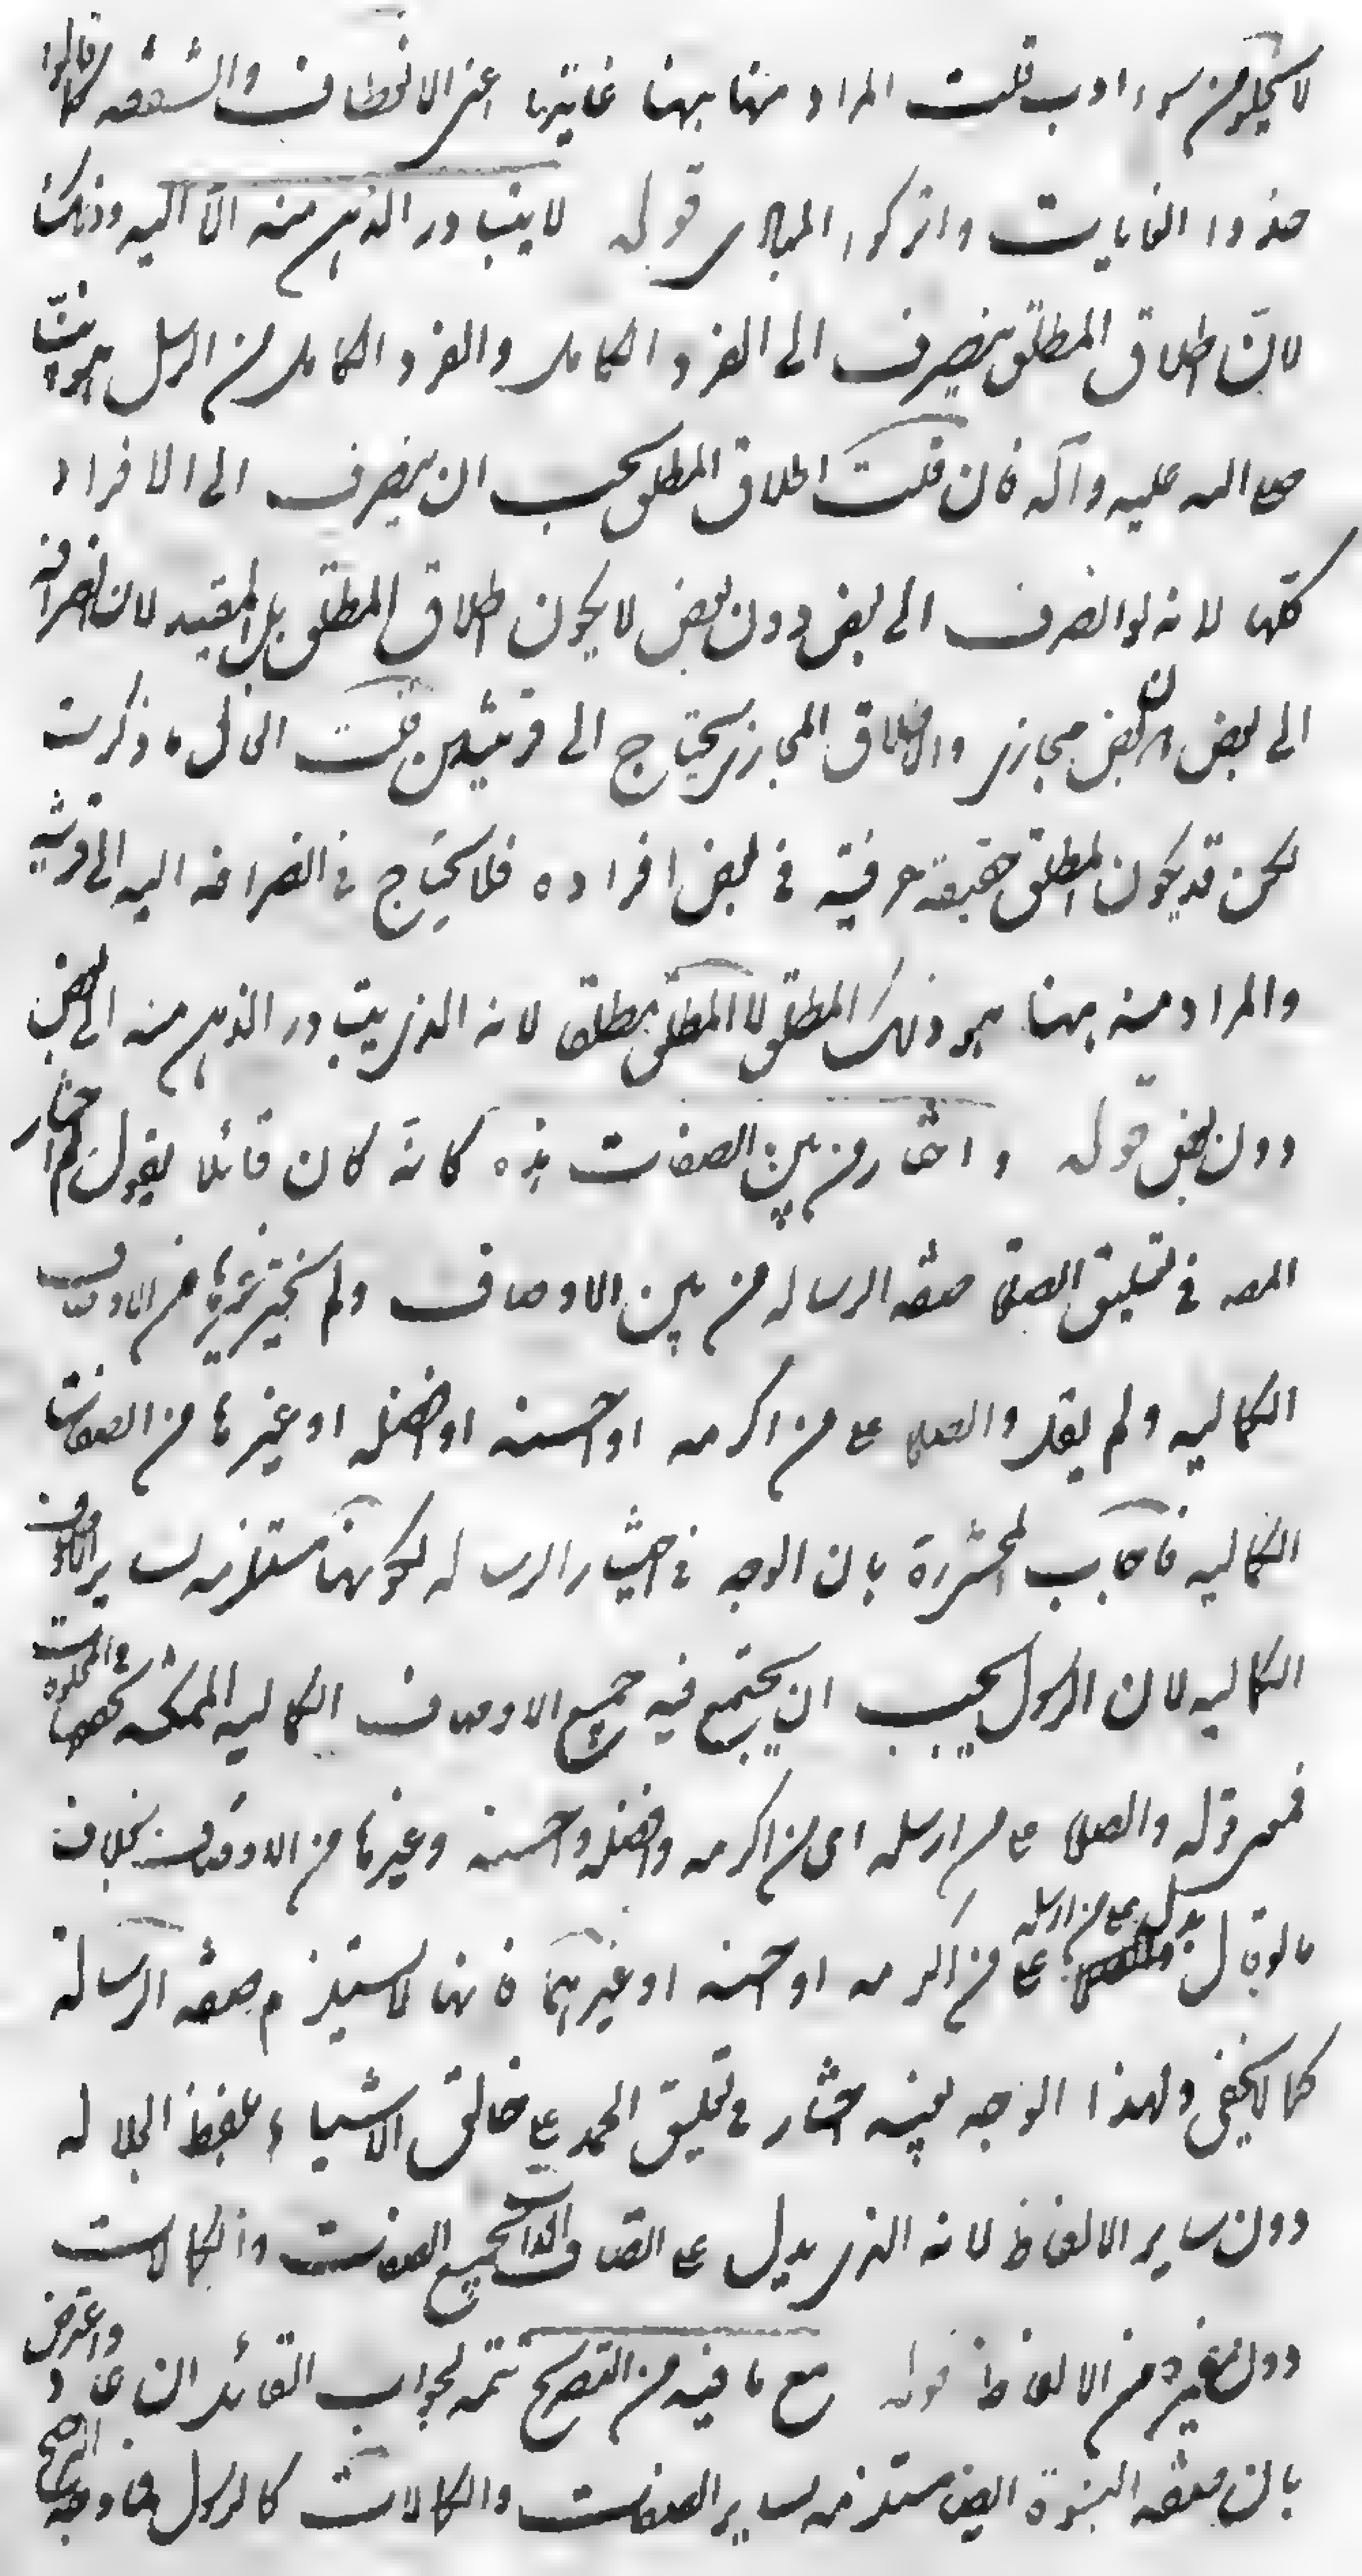 لا يخلو من سوء ادب قلت المراد منها ههنا غايتها اعنى الانعطاف والشفقة كما قالوا
خذوا الغايات واتركوا المبادى قوله لا يتبادر الذهن منه الا اليه وذلك
لانّ اطلاق المطلق ينصرف الى الفرد الكامل والفرد الكامل من الرسل هو نبيّنا
صلى الله عليه وآله فان قلت اطلاق المطلق يجب ان ينصرف الى الافراد
كلها لانه لو انصرف الى بعض دون بعض لا يكون اطلاق المطلق بل المقيد لان انصرافه
الى بعض دون بعض مجازى والاطلاق المجازى يحتاج الى قرينة قلت الحال ما ذكرت
لكن قد يكون المطلق حقيقة عرفية فى بعض افراده فلا يحتاج فى انصرافه اليه الى قرينة
والمراد منه ههنا هو ذلك المطلق لا المطلق مطلقا لانه الذى يتبادر الذهن منه الى بعض
دون بعض قوله واختار من بين الصفات هذه كانّه كان قائلا يقول لم اختار
المصـ فى تعليق الصلى صفة الرسالة من بين الاوصاف ولم يختر غيرها من الاوصاف
الكمالية ولم يقل والصلى على من اكرمه او احسنه او افضله او غيرها من الصفات
الكمالية فاجاب المحشى ره بان الوجه فى اختيار الرسالة لكونها مستلزمة لساير الاوصاف
الكمالية لان الرسول يجب ان يجتمع فيه جميع الاوصاف الكمالية الممكنة حصولها فى المخلوقات
فمعنى قوله والصلى على من ارسله اى من اكرمه وافضله واحسنه وغيرها من الاوصاف بخلاف
ما لو قال بدل على من ارسله على من اكرمه او احسنه او غيرهما فانها لا يستلزم صفة الرسالة
كما لا يخفى ولهذا الوجه بعينه اختار فى تعليق الحمد على خالق الاشياء بلفظ الجلالة
دون ساير الالفاظ لانه الذى يدل على اتصاف الذات بجميع الصفات والكمالات
دون غيره من الالفاظ قوله مع ما فيه من التصريح تتمة لجواب القائل ان عاد واعترض
بان صفة النبوة ايضا مستلزمة لساير الصفات والكمالات كالرسول فما وجه الترجيح